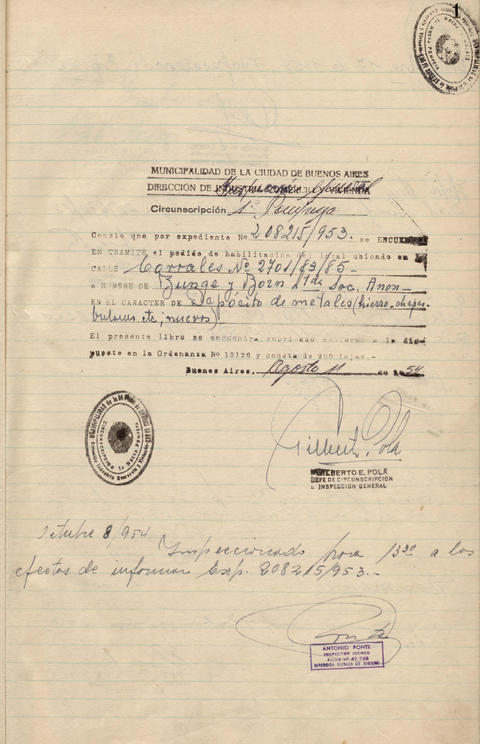 1
MUNICIPALIDAD DE LA CIUDAD DE BUENOS AIRES
DIRECCIÓN DE INDUSTRIA COMERCIO Y VIVIENDA
Inspección General
Circunscripción 1ª
Conste que por expediente No. 208215/953. se ENCUENTRA
EN TRAMITE el pedido de habilitación del local ubicado en
CALLE Corrales Nº 2701/83/85-
a NOMBRE DE Bunge y Born Ltda Soc. Anon-
EN EL CARACTER DE Depósito de metales (hierro, chapas
bulones etc; nuevos)
El presente libro se encuentra rubricado conforme a lo dis-
puesto en la Ordenanza No 13126 y consta de 200 fojas.-
Buenos Aires, Agosto 11 de 1954
Gilberto Pola
GILBERTO E. POLA
JEFE DE CIRCUNSCRIPCION
INSPECCIÓN GENERAL
Octubre 8/954
Inspeccionado hora 13³⁰ a los
efectos de informar Exp. 208215/953.-
Ponte
ANTONIO PONTE
INSPECTOR TÉCNICO
DIRECCIÓN TÉCNICA DE HIGIENE